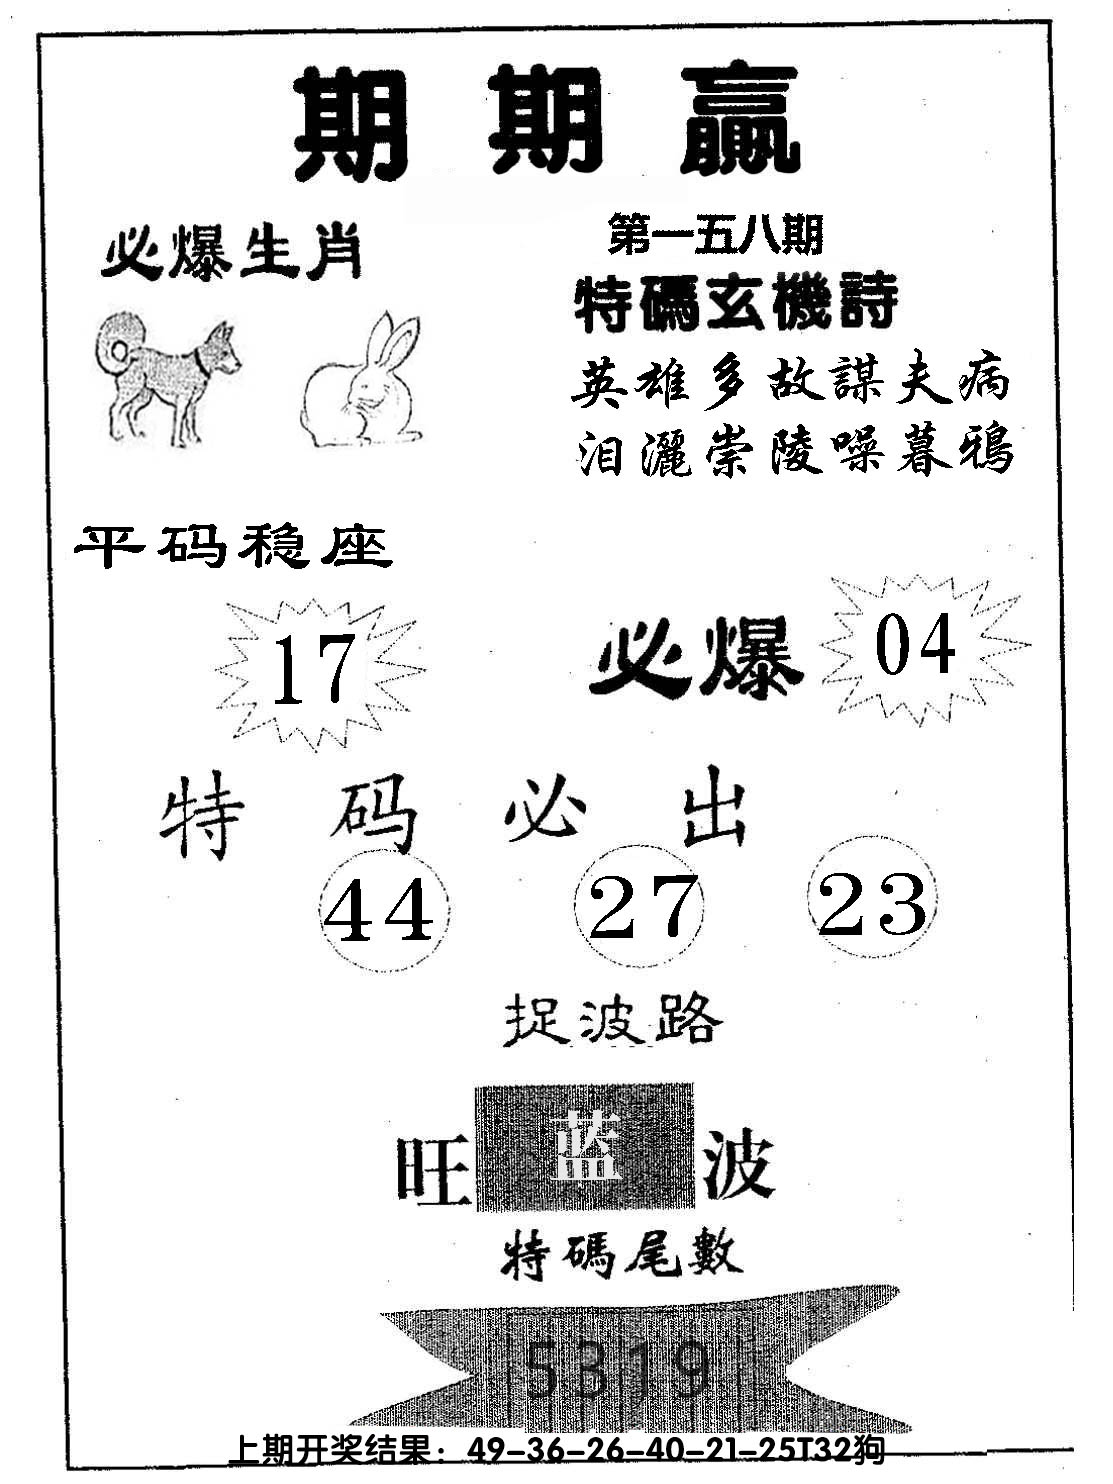 期期贏
第一五八期
必爆生肖
特碼玄機詩
英雄多故謀夫病
泪灑崇陵噪暮鴉
平码稳座
17
必爆 04
特码必出
44 27 23
捉波路
旺蓝波
特碼尾數
5319
上期开奖结果：49-36-26-40-21-25T32狗